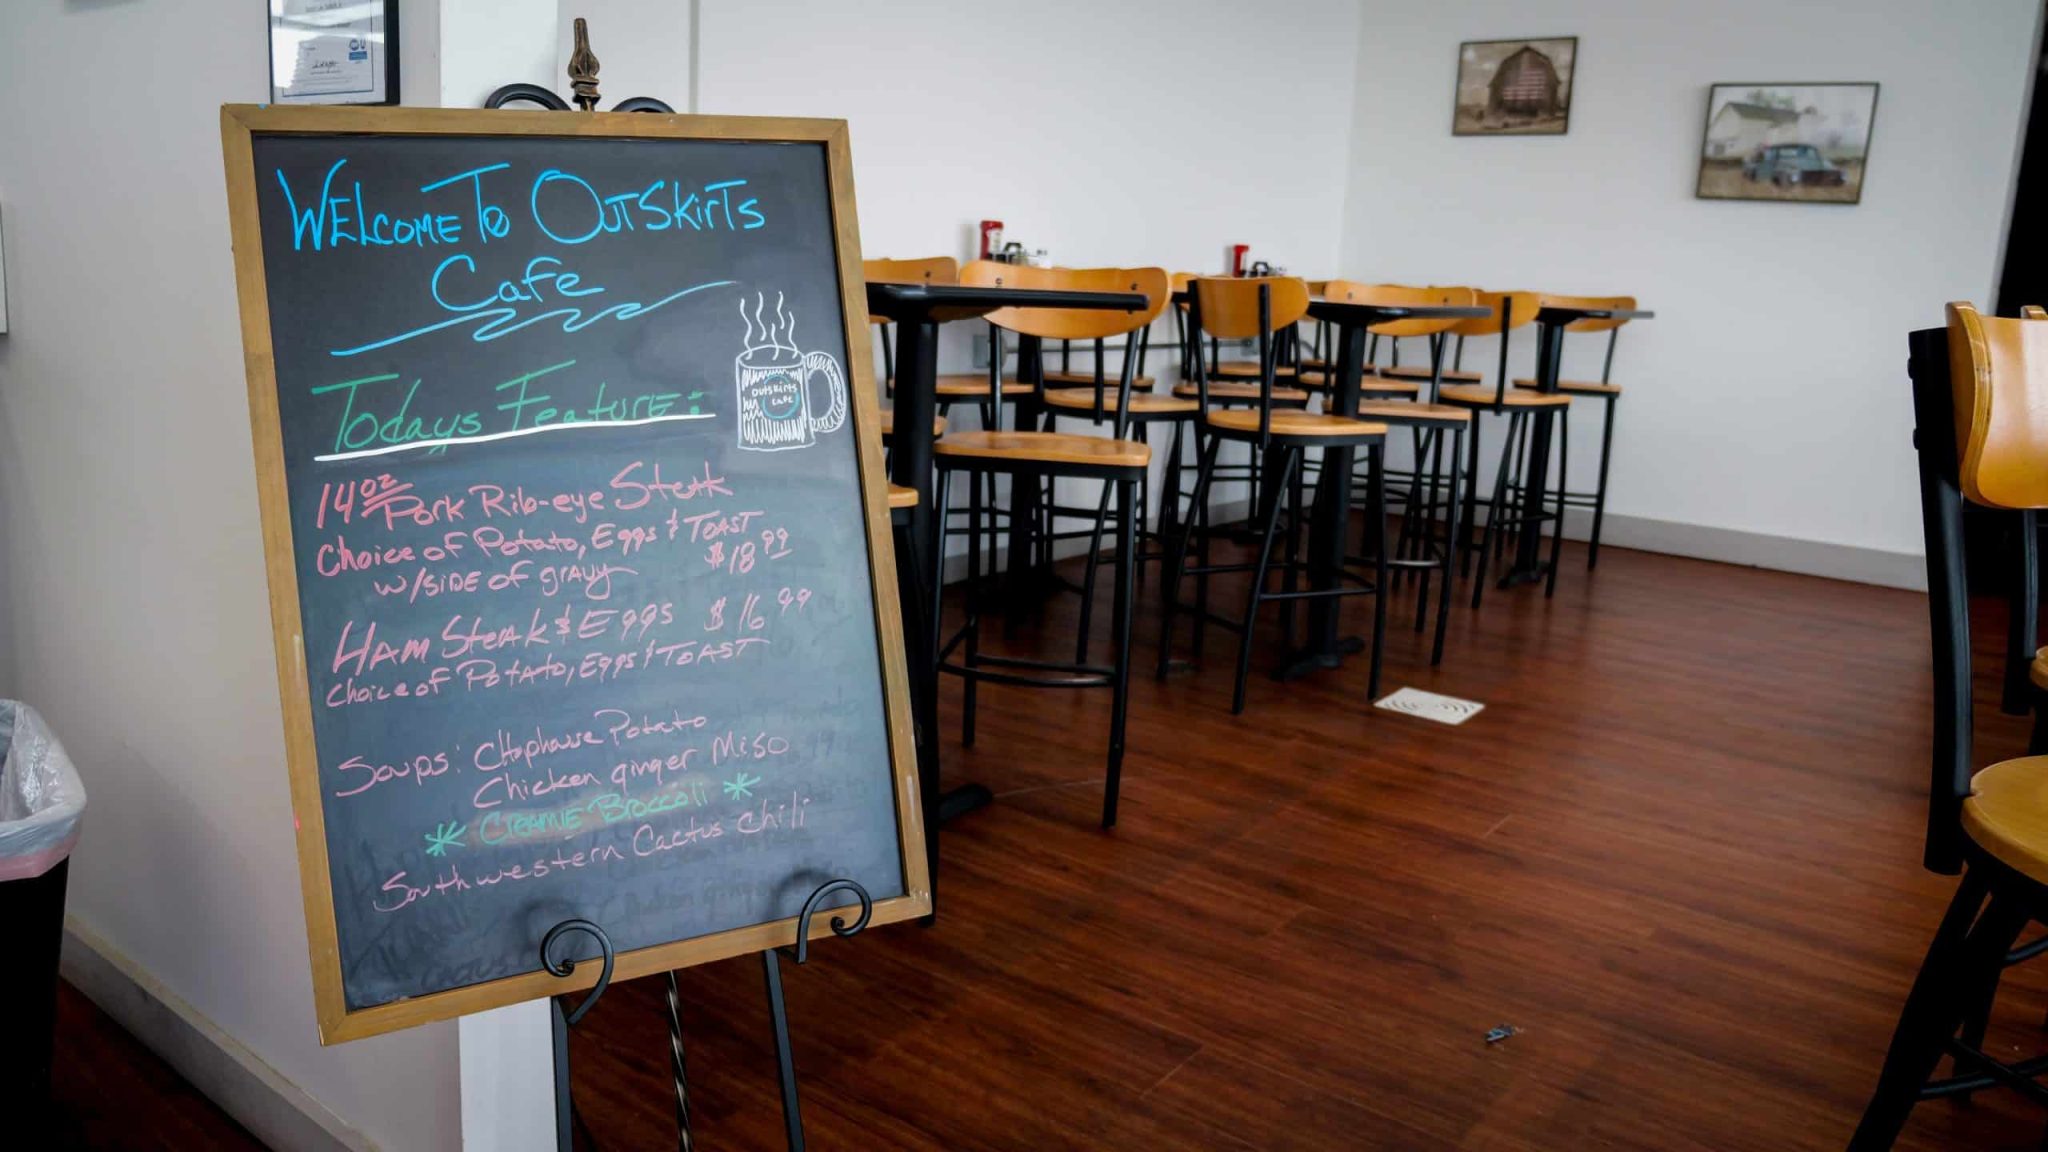 WELCOME TO OUTSKIRTS
Cafe
Todays Feature:
outskirts
cafe
14oz Pork Rib-eye Steak
Choice of Potato, Eggs & TOAST
w/SIDE of gravy $18.99
HAM Steak & Eggs $16.99
Choice of Potato, Eggs & TOAST
Soups: Chophouse Potato
Chicken ginger Miso
* CREAMIE Broccoli *
Southwestern Cactus chili